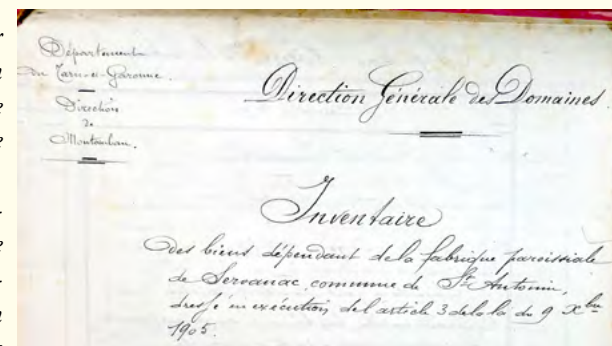 Département
du Tarn-et-Garonne.
Direction
de
Montauban.
Direction Générale des Domaines
Inventaire
des biens dépendant de la fabrique paroissiale
de Servanac, commune de St Antonin,
dressé en exécution de l'article 3 de la loi du 9 Xbre
1905.